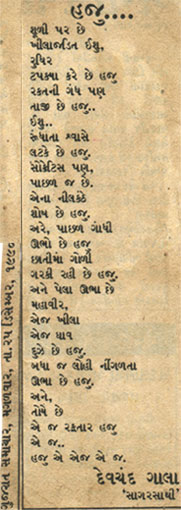 હજુ....
શૂળી પર છે
ખીલાજડિત ઈશુ,
રુધિર
ટપક્યા કરે છે હજુ
રક્તની ગંધ પણ
તાજી છે હજુ..
ઈશુ..
રૂંધાતા શ્વાસે
લટકે છે હજુ.
સોક્રેટિસ પણ,
પાછળ જ છે.
એના નીલકંઠે
શોષ છે હજુ.
અરે, પાછળ ગાંધી
ઊભો છે હજુ
છાતીમાં ગોળી
ગરકી રહી છે હજુ.
અને પેલા ઊભા છે
મહાવીર,
એજ ખીલા
એજ ઘાવ
દુઝે છે હજુ.
બધા જ લોહી નીંગળતા
ઊભા છે હજુ.
અને,
તોષે છે
એ જ રક્તતાર હજુ
એ જ..
હજુ એ એજ એ જ.
દેવચંદ ગાલા
'સાગરસાથી'
ગુજરાત સમાચાર, મંગળવાર, તા.૨૫ ડિસેમ્બર, ૧૯૯૦